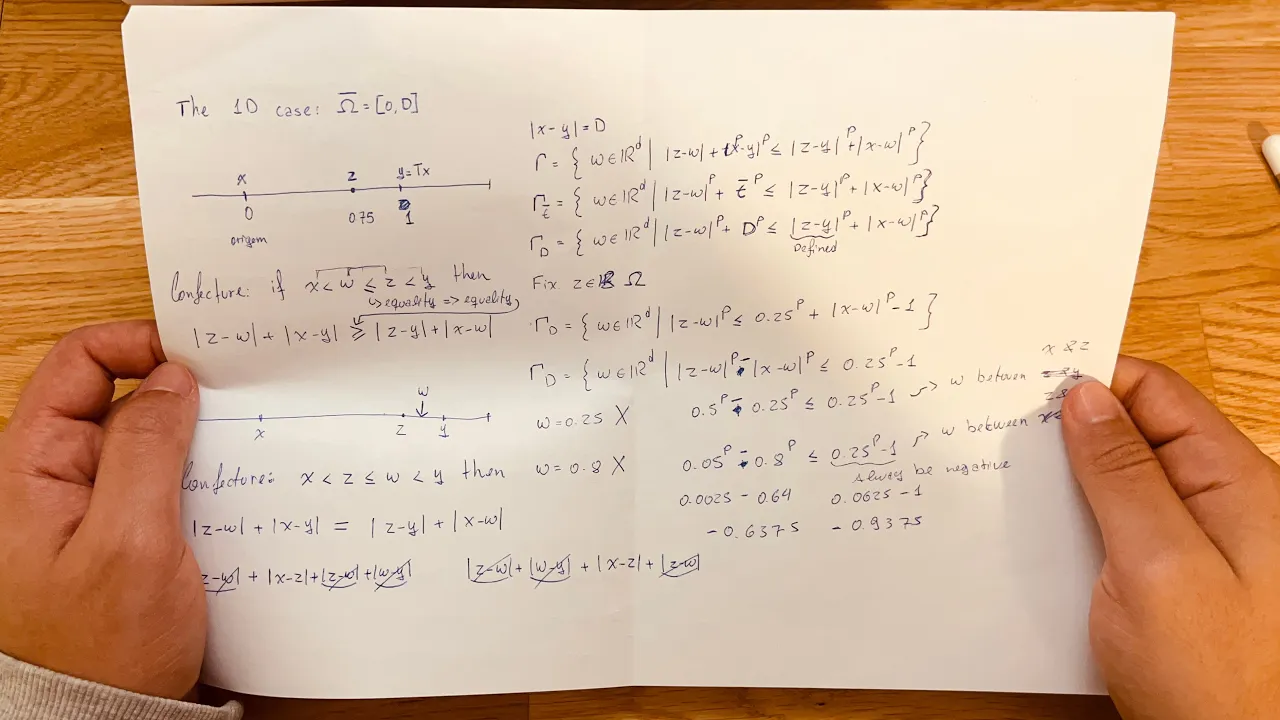 The 1D case: Ω̅ = [0, D]
x z y=Tx
0 0.75 1
origem
Conjecture: if x < w ≤ z < y then
↳ equality => equality
|z-w| + |x-y| ≥ |z-y| + |x-w|
w
x z y
Conjecture: x < z ≤ w < y then
|z-w| + |x-y| = |z-y| + |x-w|
|z-w| + |x-z| + |z-w| + |w-y| |z-w| + |w-y| + |x-z| + |z-w|
|x-y| = D
Γ = { w ∈ ℝᵈ | |z-w| + |x-y|ᵖ ≤ |z-y|ᵖ + |x-w|ᵖ }
Γ_t̅ = { w ∈ ℝᵈ | |z-w|ᵖ + t̅ᵖ ≤ |z-y|ᵖ + |x-w|ᵖ }
Γ_D = { w ∈ ℝᵈ | |z-w|ᵖ + Dᵖ ≤ |z-y|ᵖ + |x-w|ᵖ }
Defined
Fix z ∈ Ω
Γ_D = { w ∈ ℝᵈ | |z-w|ᵖ ≤ 0.25ᵖ + |x-w|ᵖ - 1 }
Γ_D = { w ∈ ℝᵈ | |z-w|ᵖ - |x-w|ᵖ ≤ 0.25ᵖ - 1
x & z
w = 0.25 X 0.5ᵖ - 0.25ᵖ ≤ 0.25ᵖ - 1 ↝ w between
w = 0.8 X 0.05ᵖ - 0.8ᵖ ≤ 0.25ᵖ - 1 ↝ w between
Always be negative
0.0025 - 0.64 0.0625 - 1
- 0.6375 - 0.9375